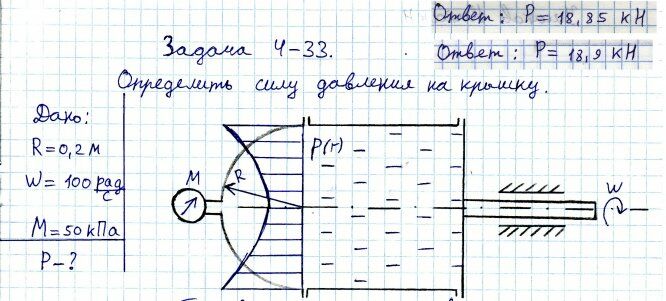 Ответ: P = 18,85 кН
Задача 4-33.
Ответ: P = 18,9 кН
Определить силу давления на крышку.
Дано:
R = 0,2 м
W = 100 рад/с
M = 50 кПа
P - ?
M
R
P(r)
W